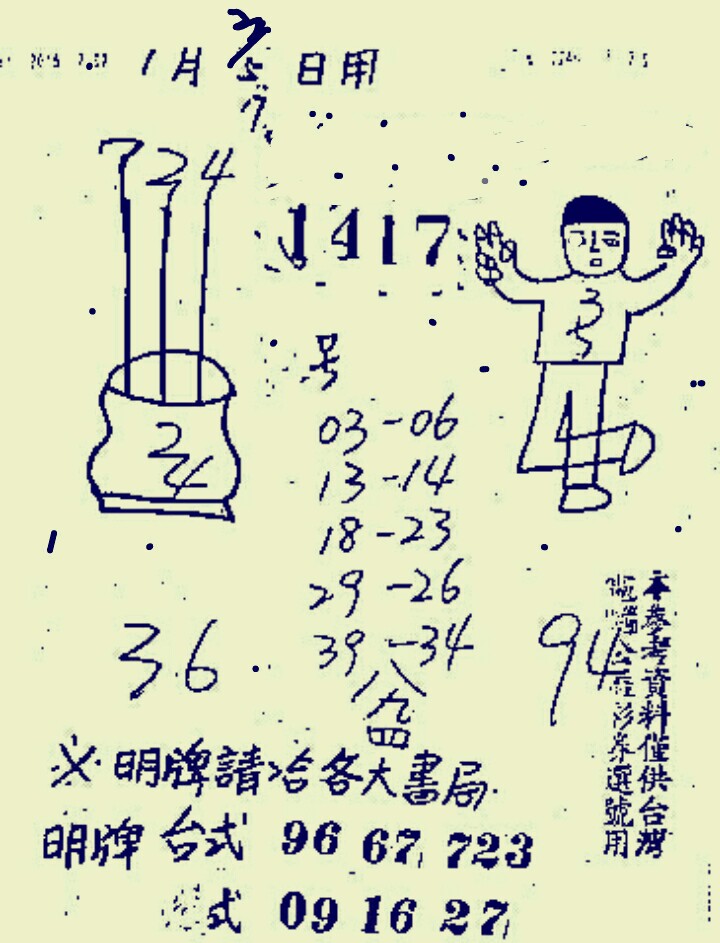 1月 3/5/7 日用
724
1417
号
35
24
03-06
13-14
18-23
29-26
39-34
36
94
八
九
四
※明牌請洽各大書局.
明牌 台式 96 67 723
式 09 16 27
本參考資料僅供台灣
電腦公益彩券選號用